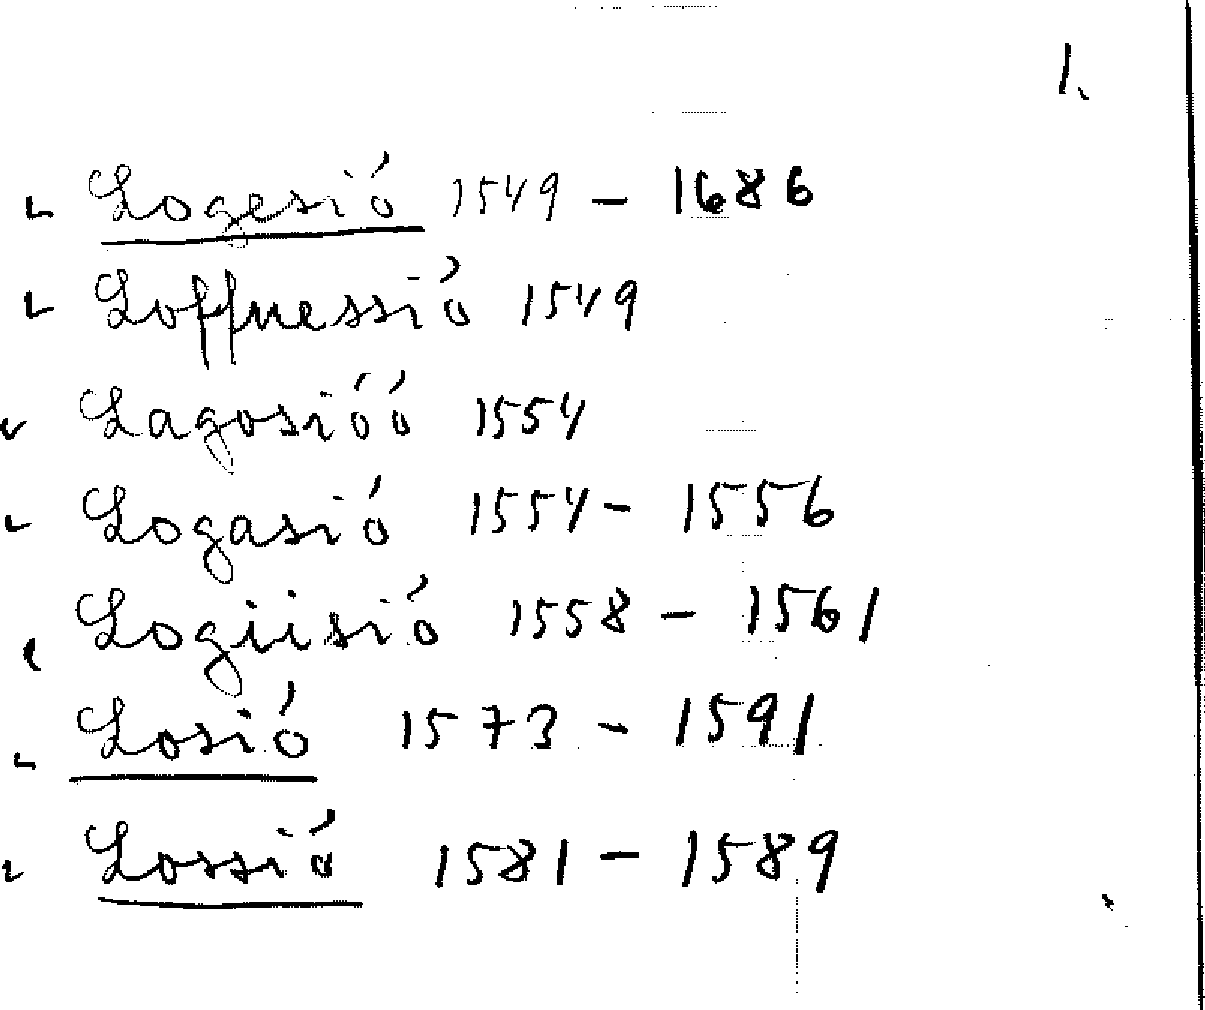 1.
Logesió 1549 - 1686
Loffnessió 1549
Lagosióó 1554
Logasió 1554 - 1556
Logiisió 1558 - 1561
Losió 1573 - 1591
Lossió 1581 - 1589